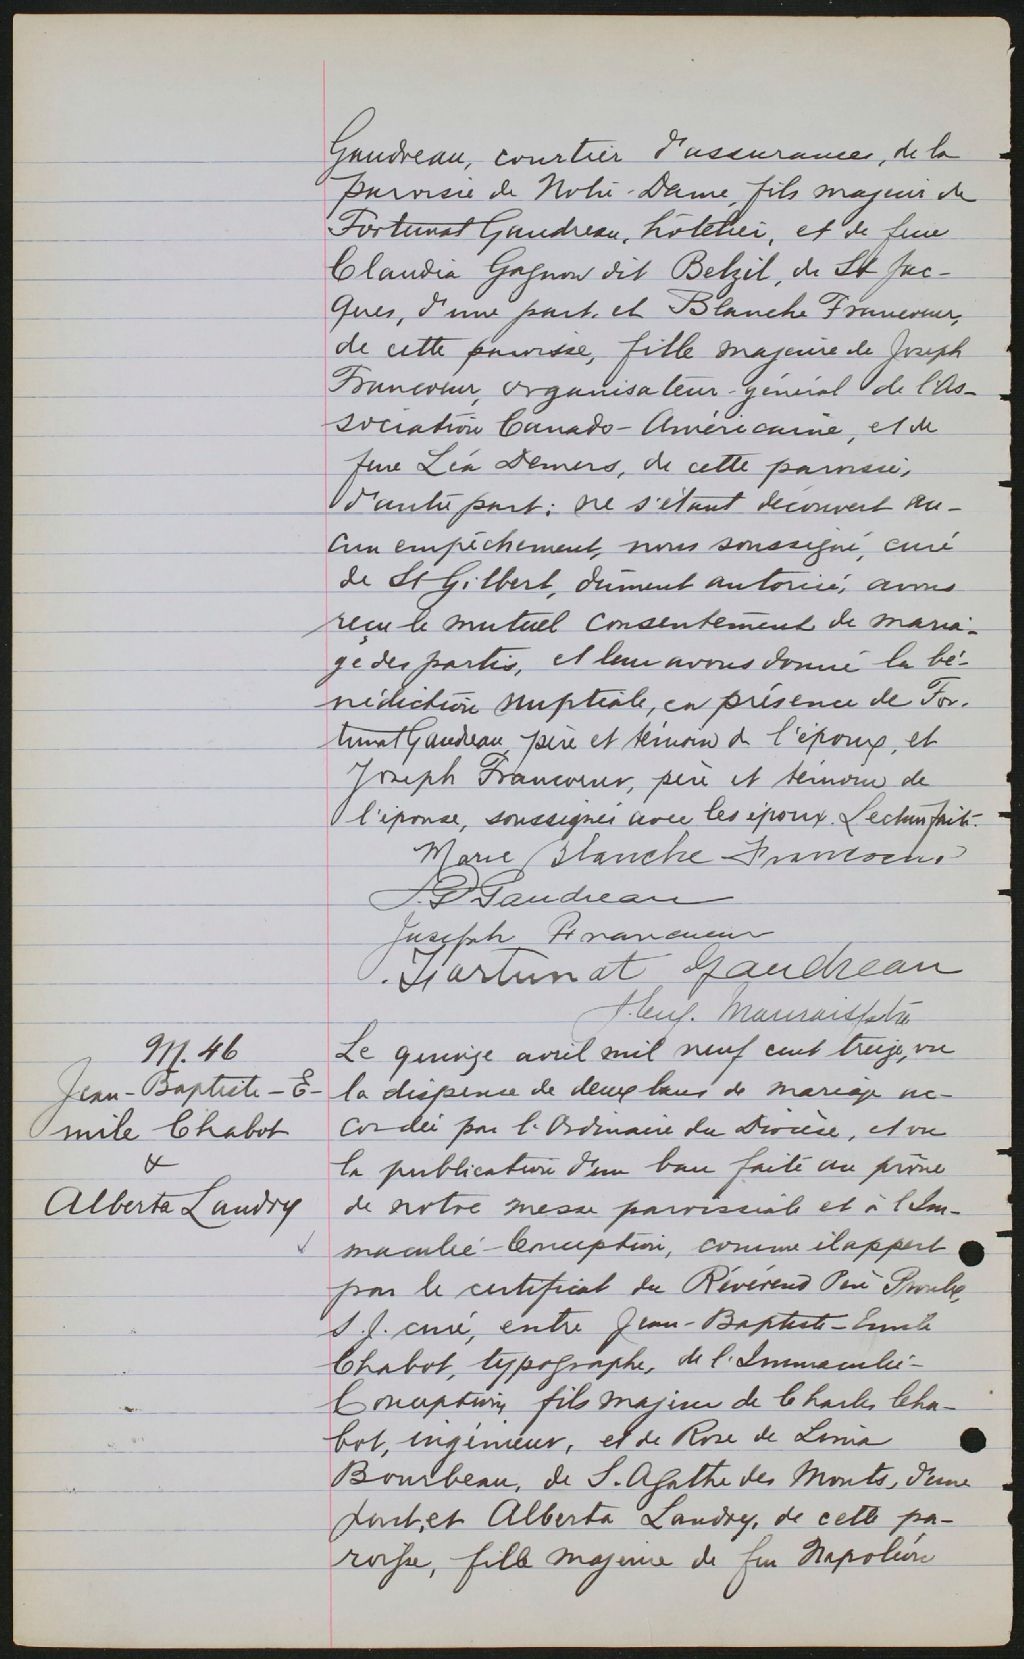 Gaudreau, courtier d'assurances, de la
paroisse de Notre-Dame, fils majeur de
Fortunat Gaudreau, hôtelier, et de feue
Claudia Gagnon dit Belzil, de St Jac-
ques, d'une part, et Blanche Francoeur,
de cette paroisse, fille majeure de Joseph
Francoeur, organisateur-général de l'As-
sociation Canado-Américaine, et de
feue Léa Demers, de cette paroisse,
d'autre part; ne s'étant découvert au-
cun empêchement, nous soussigné, curé
de St Gilbert, dûment autorisé, avons
reçu le mutuel consentement de maria-
ge des parties, et leur avons donné la bé-
nédiction nuptiale, en présence de For-
tunat Gaudreau, père et témoin de l'époux, et
Joseph Francoeur, père et témoin de
l'épouse, soussignés avec les époux. Lecture faite.
Marie Blanche Francoeur
Gaudreau
Joseph Francoeur
Fortunat Gaudreau
J. Eug. Maurais ptre
M. 46
Jean-Baptiste-E-
mile Chabot
&
Alberta Landry
Le quinze avril mil neuf cent treize, vu
la dispense de deux bans de mariage ac-
cordée par l'Ordinaire du Diocèse, et vu
la publication d'un ban faite au prône
de notre messe paroissiale et à l'Im-
maculée-Conception, comme il appert
par le certificat du Révérend Père Proulx,
S.J. curé, entre Jean-Baptiste-Emile
Chabot, typographe, de l'Immaculée-
Conception, fils majeur de Charles Cha-
bot, ingénieur, et de Rose de Lima
Bourbeau, de S. Agathe des Monts, d'une
part, et Alberta Landry, de cette pa-
roisse, fille majeure de feu Napoléon